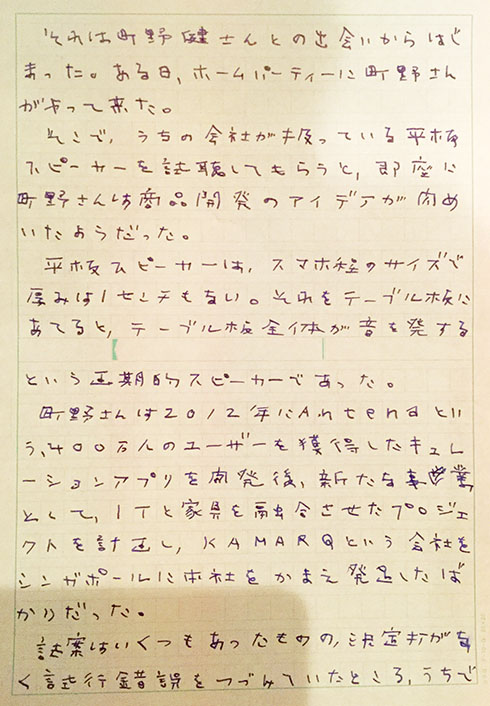 それは町野健さんとの出会いからはじ
まった。ある日、ホームパーティーに町野さん
がやって来た。
そこで、うちの会社が扱っている平板
スピーカーを試聴してもらうと、即座に
町野さんは商品開発のアイデアが閃め
いたようだった。
平板スピーカーは、スマホ程のサイズで
厚みは1センチもない。それをテーブル板に
あてると、テーブル板全体が音を発する
という画期的スピーカーであった。
町野さんは2012年にAntenaとい
う、400万人のユーザーを獲得したキュレ
ーションアプリを開発後、新たな事業
として、ITと家具を融合させたプロジェ
クトを計画し、KAMARQという会社を
シンガポールに本社をかまえ発足したば
かりだった。
試案はいくつもあったものの、決定打がな
く試行錯誤をつづけていたところ、うちで